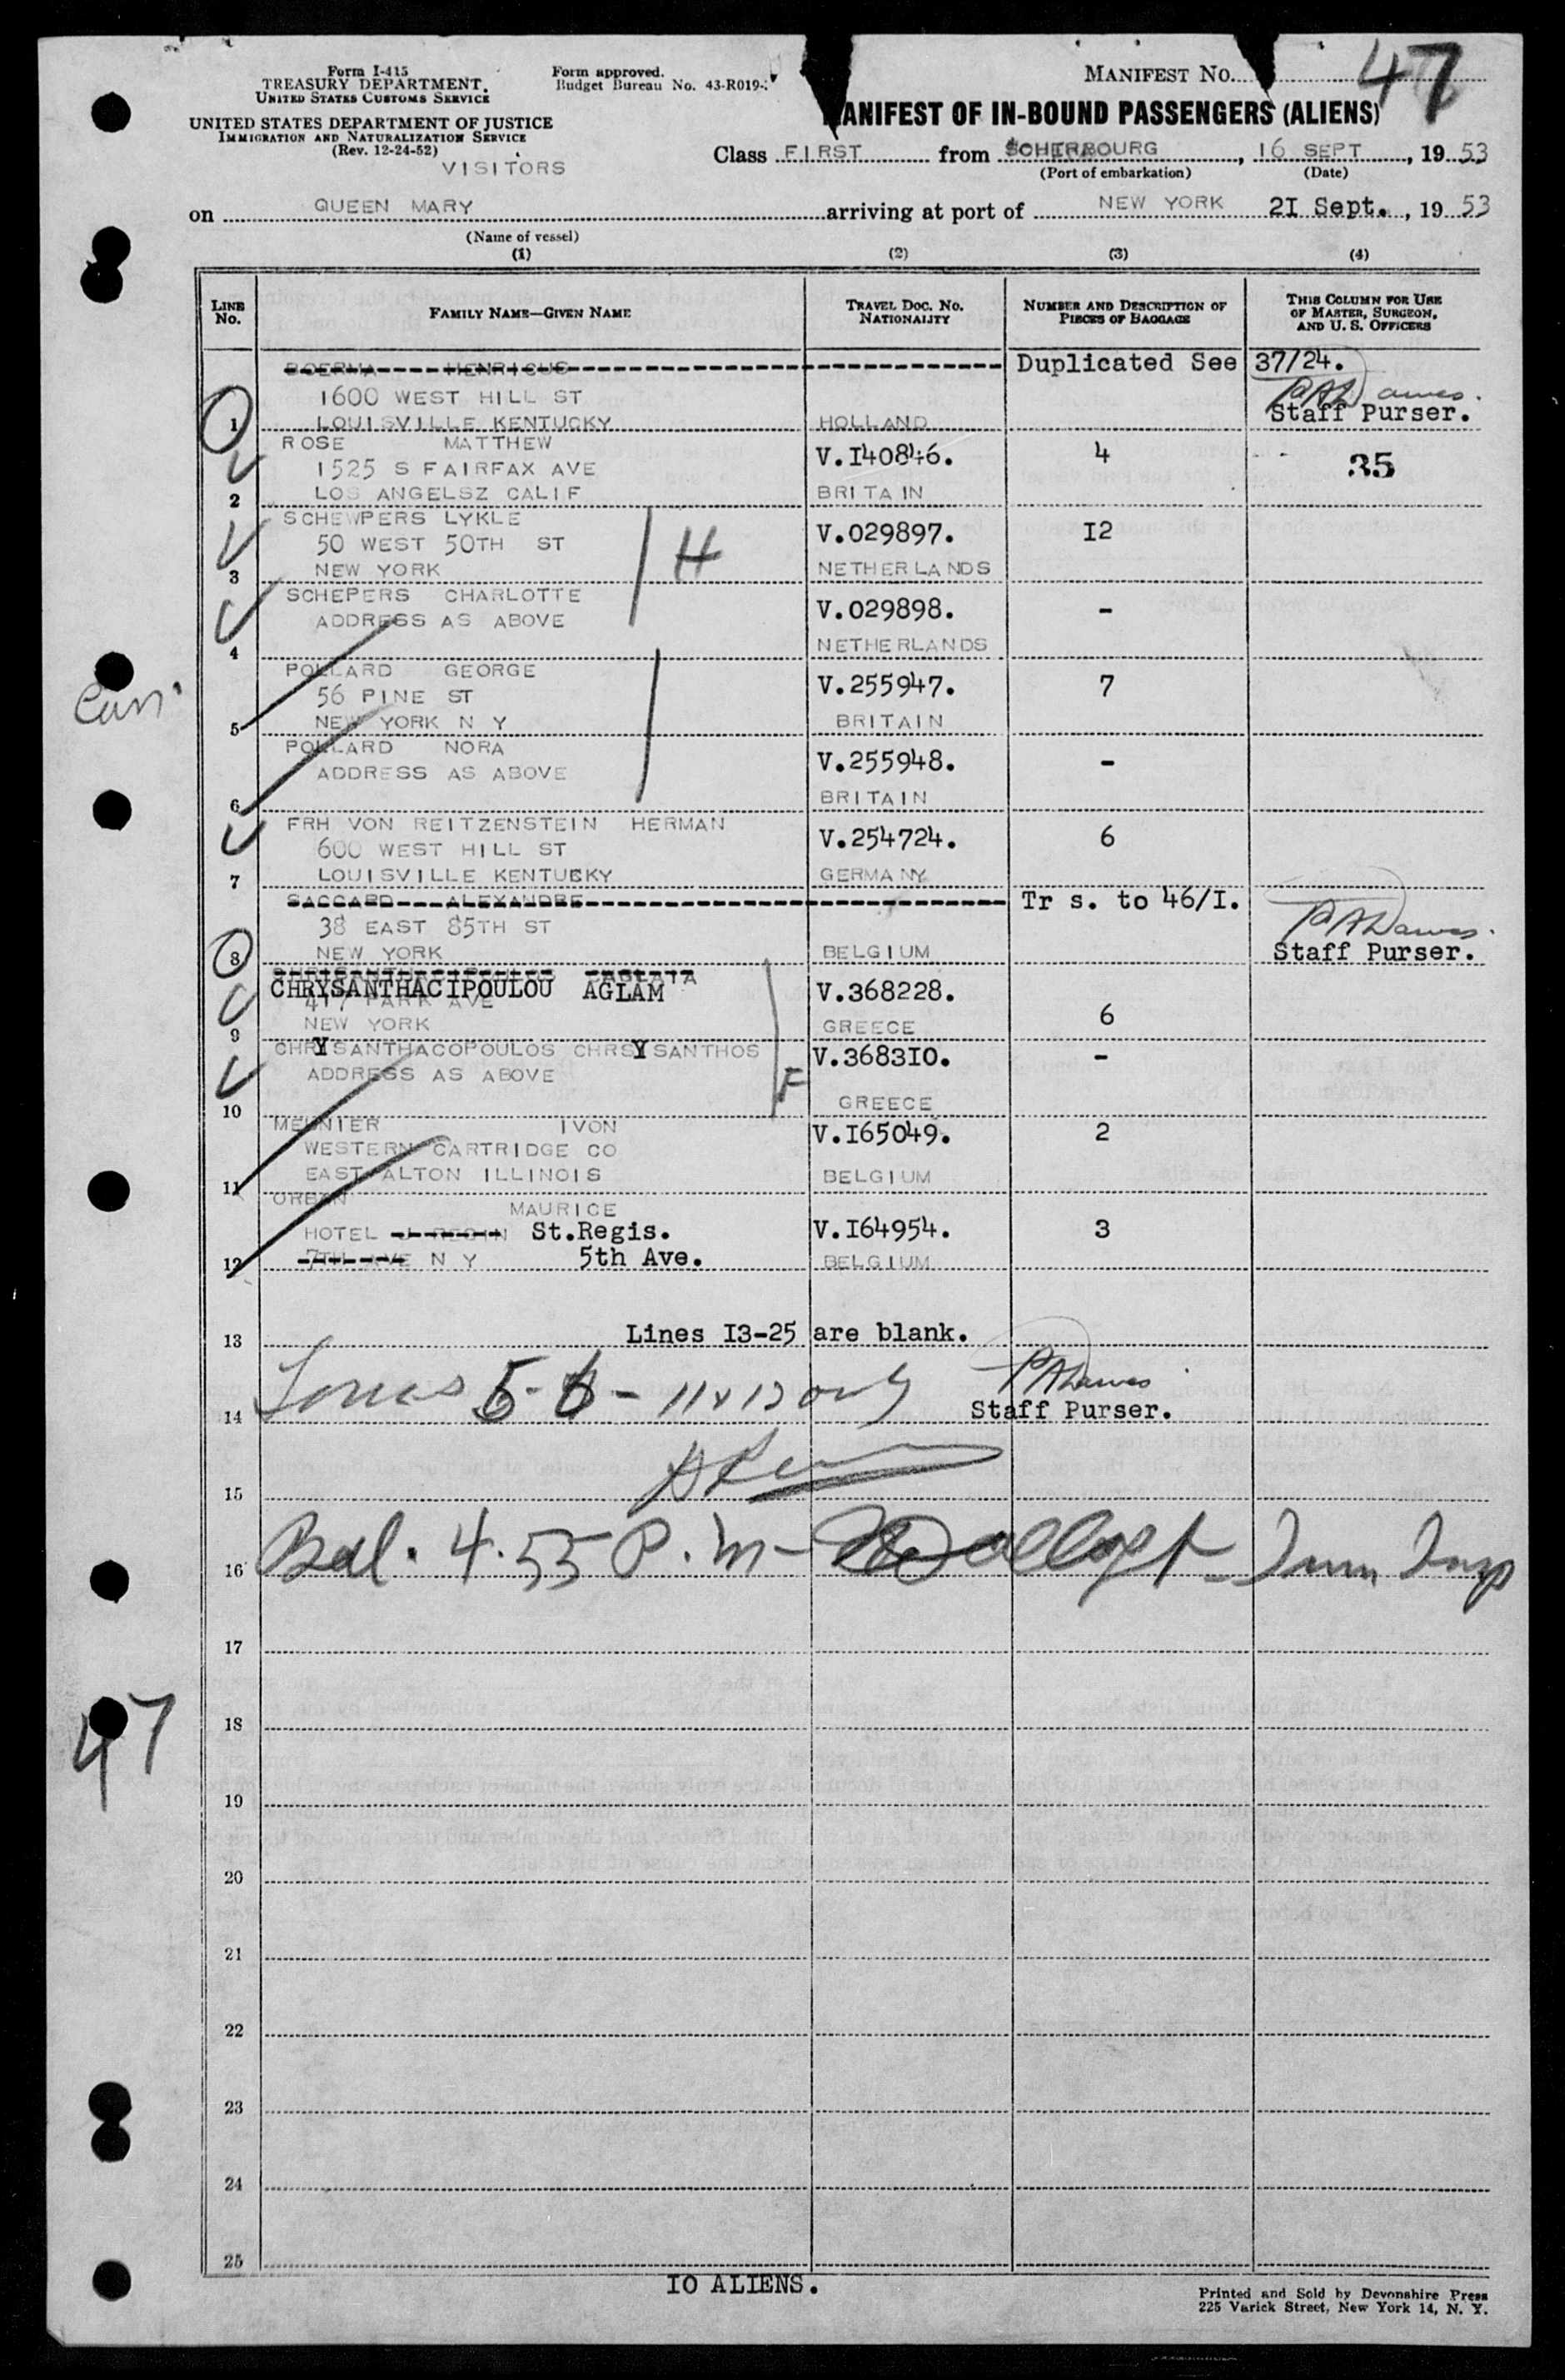 Form I-415
TREASURY DEPARTMENT
UNITED STATES CUSTOMS SERVICE
UNITED STATES DEPARTMENT OF JUSTICE
IMMIGRATION AND NATURALIZATION SERVICE
(Rev. 12-24-52)
VISITORS
Form approved.
Budget Bureau No. 43-R019-
MANIFEST NO. 47
MANIFEST OF IN-BOUND PASSENGERS (ALIENS)
Class FIRST from CHERBOURG, 16 SEPT, 19 53
(Port of embarkation) (Date)
on QUEEN MARY arriving at port of NEW YORK 21 Sept., 19 53
(Name of vessel)
(1) (2) (3) (4)
LINE NO. FAMILY NAME—GIVEN NAME TRAVEL DOC. NO. NATIONALITY NUMBER AND DESCRIPTION OF PIECES OF BAGGAGE THIS COLUMN FOR USE OF MASTER, SURGEON, AND U. S. OFFICERS
BOERMA HENRICUS Duplicated See 37/24.
1600 WEST HILL ST
1 LOUISVILLE KENTUCKY HOLLAND Staff Purser.
ROSE MATTHEW V.I40846. 4 35
1525 S FAIRFAX AVE
2 LOS ANGELSZ CALIF BRITAIN
SCHEWPERS LYKLE V.029897. I2
50 WEST 50TH ST H
3 NEW YORK NETHERLANDS
SCHEPERS CHARLOTTE V.029898. -
ADDRESS AS ABOVE
4 NETHERLANDS
POLLARD GEORGE V.255947. 7
56 PINE ST
5 NEW YORK N Y BRITAIN
POLLARD NORA V.255948. -
ADDRESS AS ABOVE
6 BRITAIN
FRH VON REITZENSTEIN HERMAN V.254724. 6
600 WEST HILL ST
7 LOUISVILLE KENTUCKY GERMANY
SACCARD ALEXANDRE Tr s. to 46/I.
38 EAST 85TH ST
8 NEW YORK BELGIUM Staff Purser.
CHRYSANTHACIPOULOU AGLAM V.368228.
417 PARK AVE 6
9 NEW YORK GREECE
CHRYSANTHACOPOULOS CHRSYSANTHOS V.3683I0. -
ADDRESS AS ABOVE F
10 GREECE
MEUNIER IVON V.I65049. 2
WESTERN CARTRIDGE CO
11 EAST ALTON ILLINOIS BELGIUM
ORBAN MAURICE
HOTEL St.Regis. V.I64954. 3
12 7TH AVE N Y 5th Ave. BELGIUM
13 Lines I3-25 are blank.
14 Lines 5-6- 11 x 12 only Staff Purser.
15
16 Bal. 4.55 P.m- Imm Insp
47
17
18
19
20
21
22
23
24
25
IO ALIENS.
Printed and Sold by Devonshire Press
225 Varick Street, New York 14, N. Y.